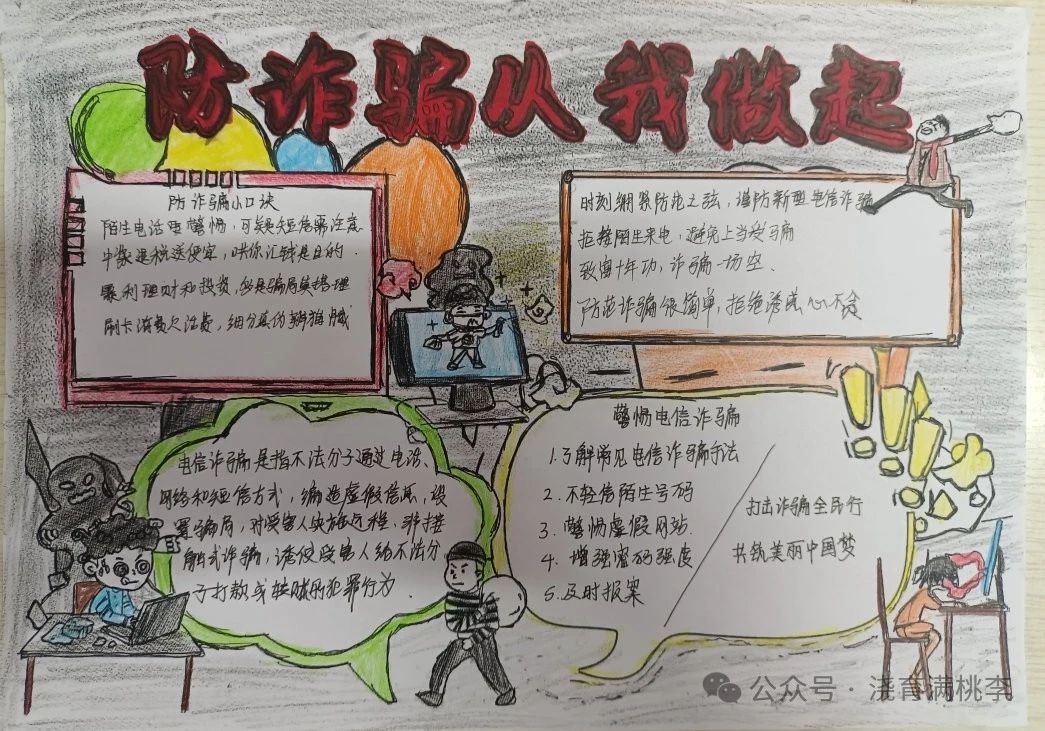 防诈骗从我做起
防诈骗小口诀
陌生电话要警惕,可疑短信需注意
中奖退税送便宜,哄你汇钱是目的.
暴利理财和投资,多是骗局莫搭理
刷卡消费欠话费,细分真伪辨猫腻
时刻绷紧防范之弦,谨防新型电信诈骗
拒接陌生来电,避免上当受骗
致富十年功,诈骗一场空、
防范诈骗很简单,拒绝诱惑心不贪
电信诈骗是指不法分子通过电话、
网络和短信方式,编造虚假信息,设
置骗局,对受害人实施远程、非接
触式诈骗,诱使受害人给不法分
子打款或转账的犯罪行为.
警惕电信诈骗
1.了解常见电信诈骗手法
2.不轻信陌生号码
3.警惕虚假网站.
4.增强密码强度
5.及时报案
打击诈骗全民行
共筑美丽中国梦
公众号·浇育满桃李